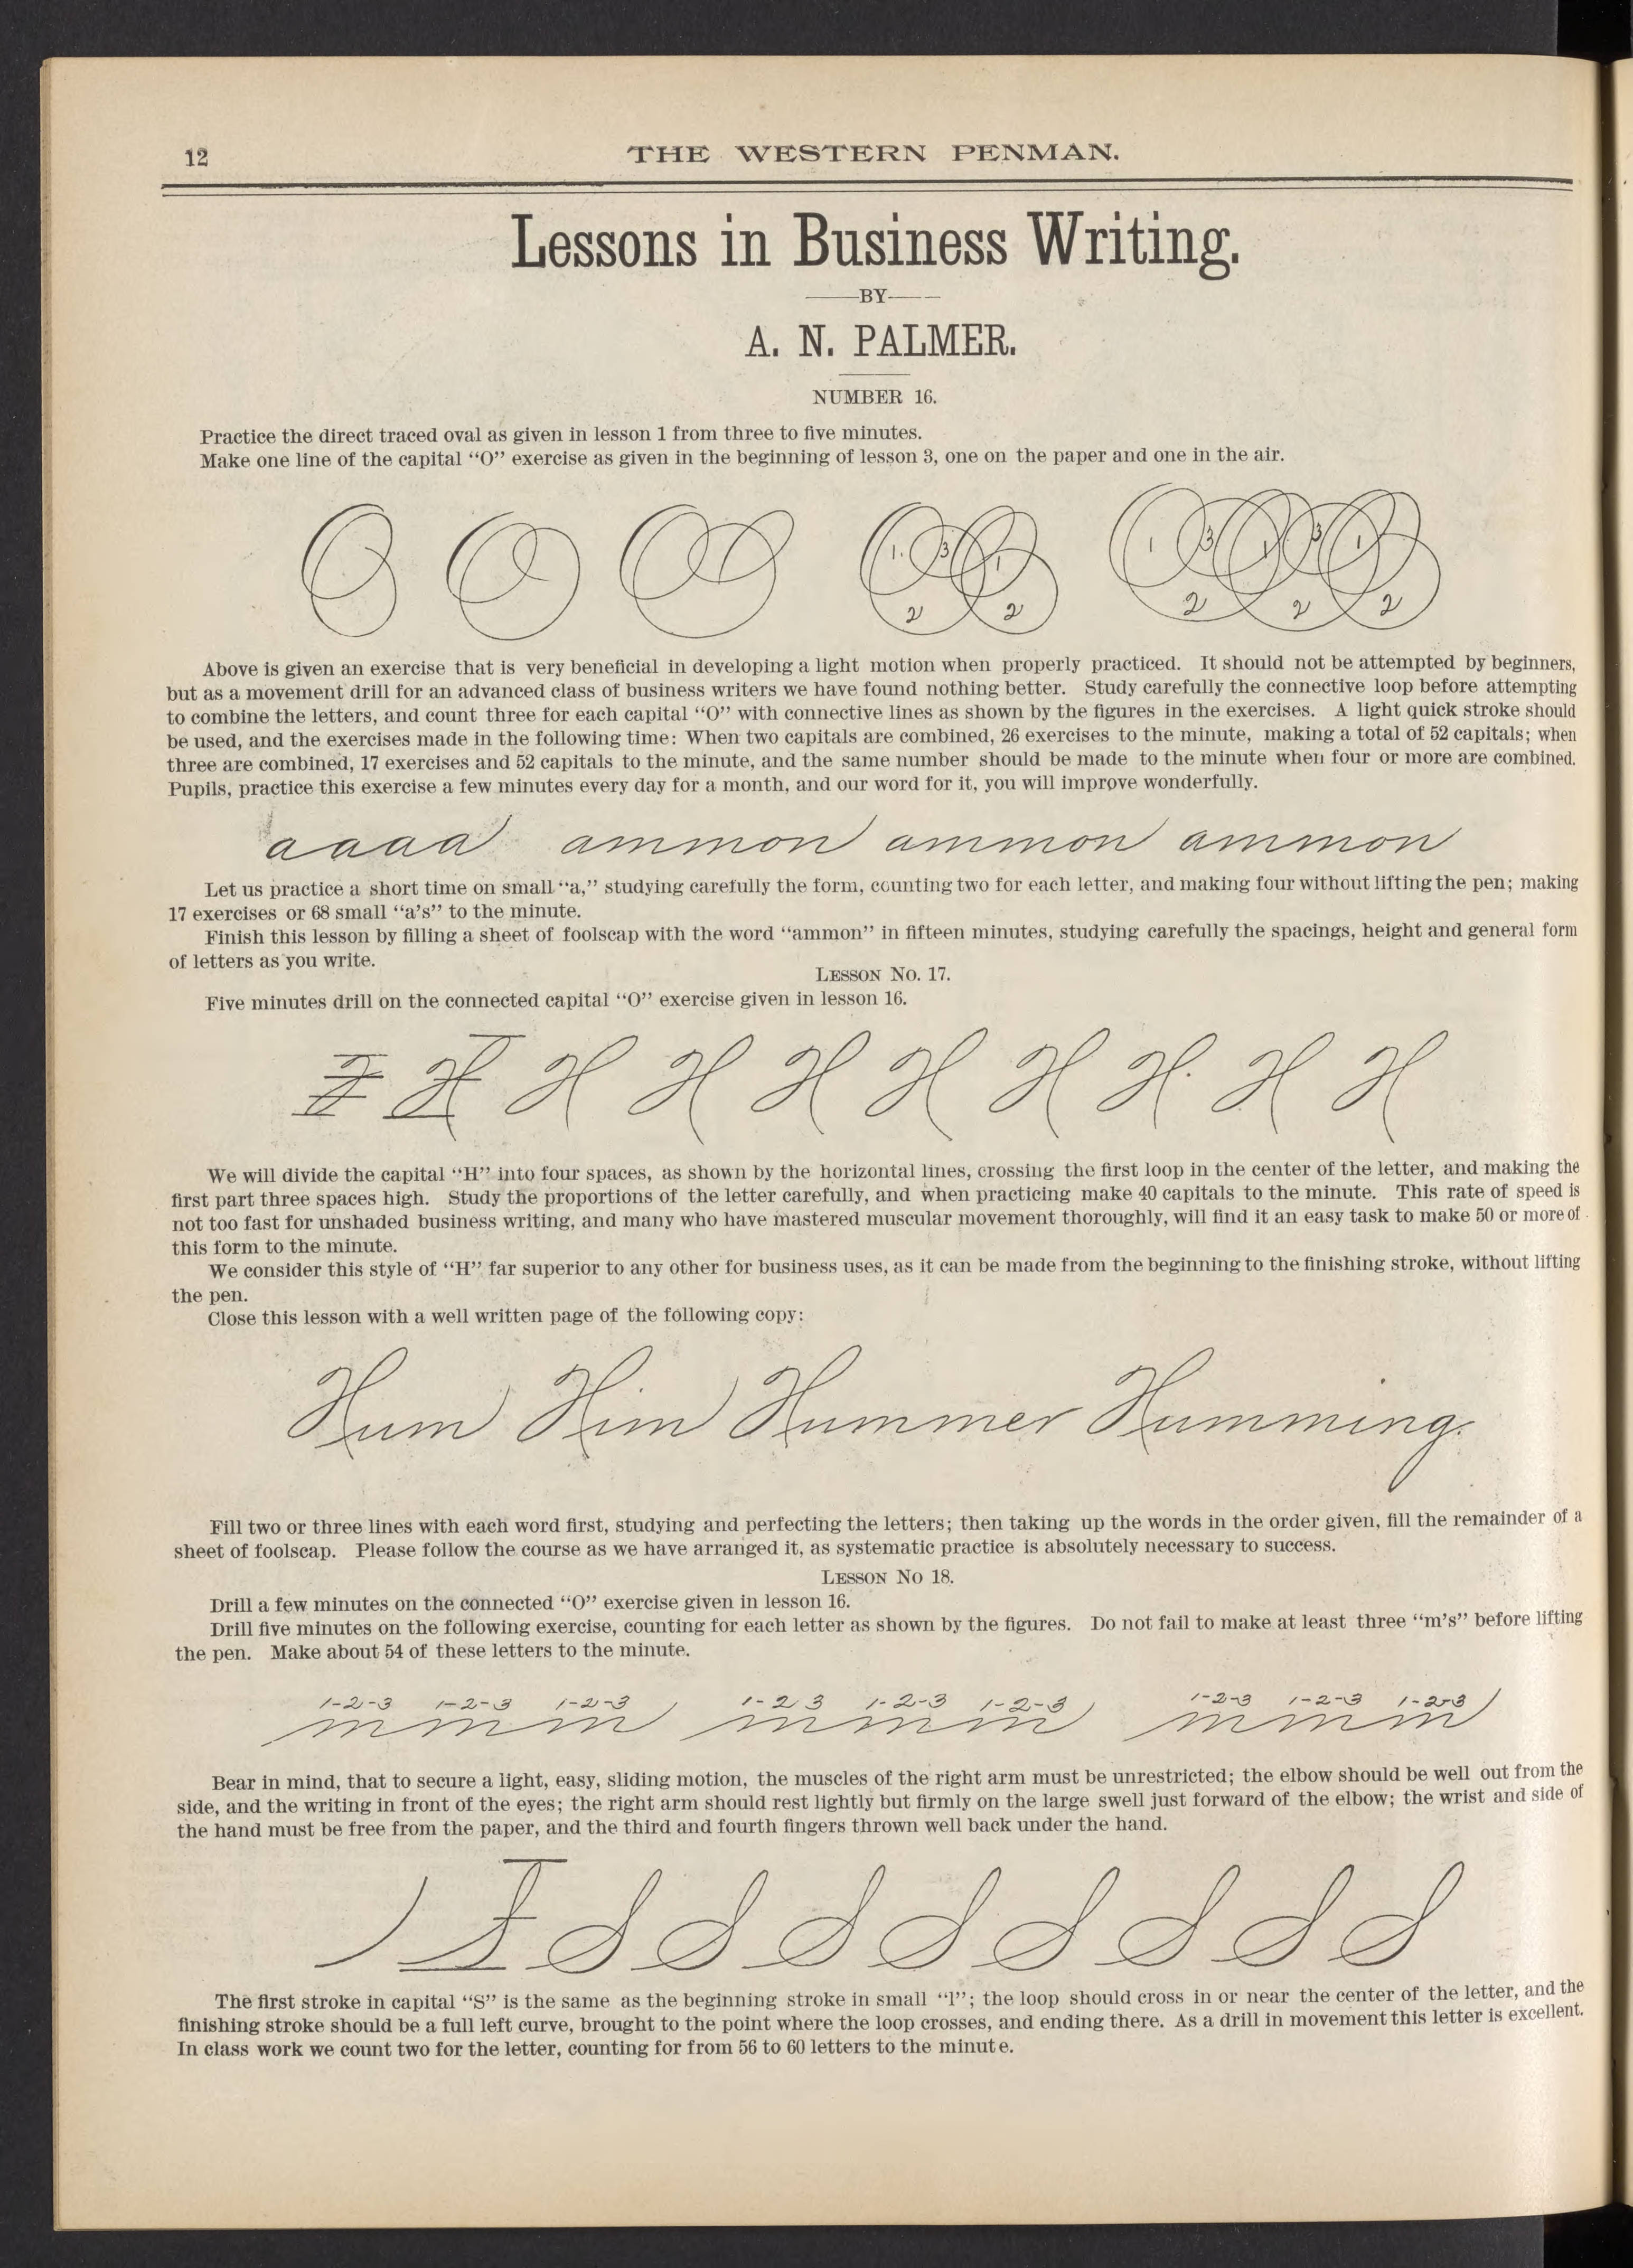 12
THE WESTERN PENMAN.
Lessons in Business Writing.
BY
A. N. PALMER.
NUMBER 16.
Practice the direct traced oval as given in lesson 1 from three to five minutes.
Make one line of the capital “O” exercise as given in the beginning of lesson 3, one on the paper and one in the air.
1. 3 1 2 2
1 3 1 3 1 2 2 2
Above is given an exercise that is very beneficial in developing a light motion when properly practiced. It should not be attempted by beginners,
but as a movement drill for an advanced class of business writers we have found nothing better. Study carefully the connective loop before attempting
to combine the letters, and count three for each capital “O” with connective lines as shown by the figures in the exercises. A light quick stroke should
be used, and the exercises made in the following time: When two capitals are combined, 26 exercises to the minute, making a total of 52 capitals; when
three are combined, 17 exercises and 52 capitals to the minute, and the same number should be made to the minute when four or more are combined.
Pupils, practice this exercise a few minutes every day for a month, and our word for it, you will improve wonderfully.
aaaa ammon ammon ammon
Let us practice a short time on small “a,” studying carefully the form, counting two for each letter, and making four without lifting the pen; making
17 exercises or 68 small “a’s” to the minute.
Finish this lesson by filling a sheet of foolscap with the word “ammon” in fifteen minutes, studying carefully the spacings, height and general form
of letters as you write.
LESSON NO. 17.
Five minutes drill on the connected capital “O” exercise given in lesson 16.
H H H H H H H H H
We will divide the capital “H” into four spaces, as shown by the horizontal lines, crossing the first loop in the center of the letter, and making the
first part three spaces high. Study the proportions of the letter carefully, and when practicing make 40 capitals to the minute. This rate of speed is
not too fast for unshaded business writing, and many who have mastered muscular movement thoroughly, will find it an easy task to make 50 or more of
this form to the minute.
We consider this style of “H” far superior to any other for business uses, as it can be made from the beginning to the finishing stroke, without lifting
the pen.
Close this lesson with a well written page of the following copy:
Hum Him Hummer Humming.
Fill two or three lines with each word first, studying and perfecting the letters; then taking up the words in the order given, fill the remainder of a
sheet of foolscap. Please follow the course as we have arranged it, as systematic practice is absolutely necessary to success.
LESSON NO 18.
Drill a few minutes on the connected “O” exercise given in lesson 16.
Drill five minutes on the following exercise, counting for each letter as shown by the figures. Do not fail to make at least three “m’s” before lifting
the pen. Make about 54 of these letters to the minute.
1-2-3 1-2-3 1-2-3 1-2 3 1-2-3 1-2-3 1-2-3 1-2-3 1-2-3
m m m m m m m m m
Bear in mind, that to secure a light, easy, sliding motion, the muscles of the right arm must be unrestricted; the elbow should be well out from the
side, and the writing in front of the eyes; the right arm should rest lightly but firmly on the large swell just forward of the elbow; the wrist and side of
the hand must be free from the paper, and the third and fourth fingers thrown well back under the hand.
S S S S S S S S S
The first stroke in capital “S” is the same as the beginning stroke in small “l”; the loop should cross in or near the center of the letter, and the
finishing stroke should be a full left curve, brought to the point where the loop crosses, and ending there. As a drill in movement this letter is excellent.
In class work we count two for the letter, counting for from 56 to 60 letters to the minute.